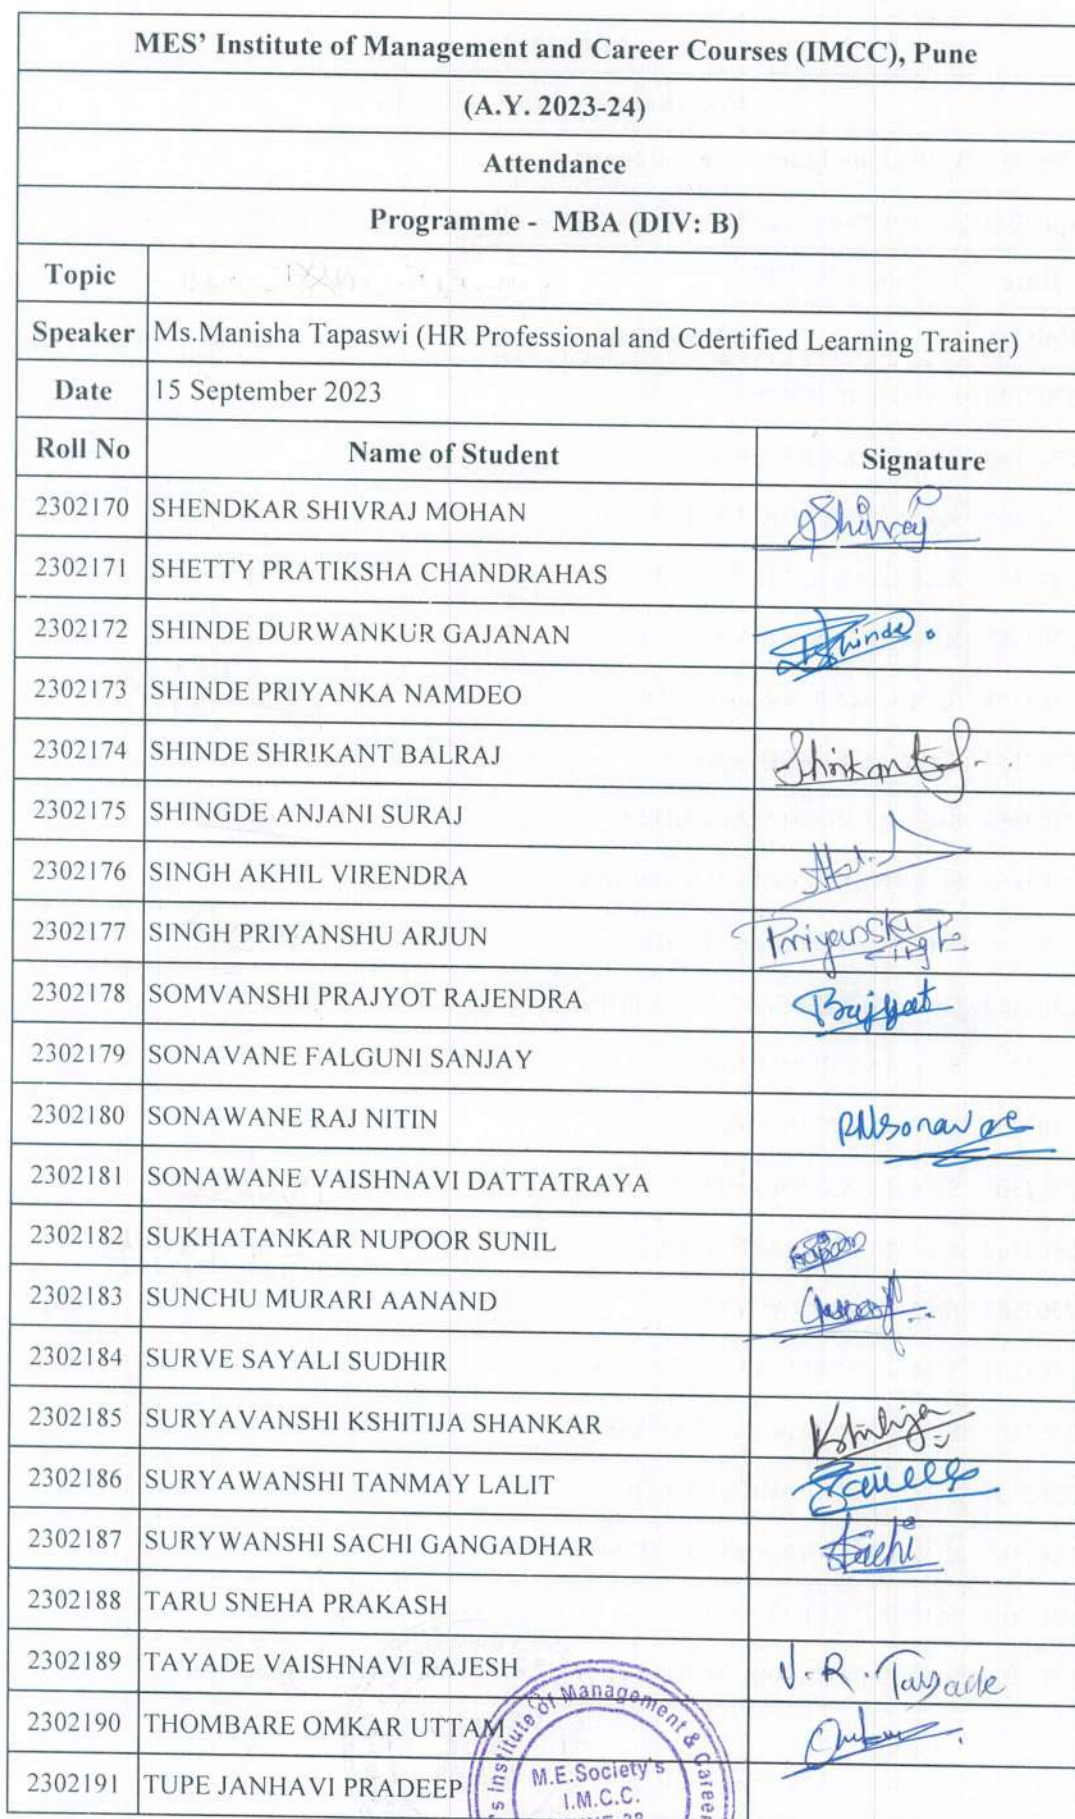 MES' Institute of Management and Career Courses (IMCC), Pune
(A.Y. 2023-24)
Attendance
Programme - MBA (DIV: B)
Topic
Speaker Ms.Manisha Tapaswi (HR Professional and Cdertified Learning Trainer)
Date 15 September 2023
Roll No Name of Student Signature
2302170 SHENDKAR SHIVRAJ MOHAN Shivraj
2302171 SHETTY PRATIKSHA CHANDRAHAS
2302172 SHINDE DURWANKUR GAJANAN Shinde.
2302173 SHINDE PRIYANKA NAMDEO
2302174 SHINDE SHRIKANT BALRAJ Shrikant
2302175 SHINGDE ANJANI SURAJ
2302176 SINGH AKHIL VIRENDRA
2302177 SINGH PRIYANSHU ARJUN Priyanshu
2302178 SOMVANSHI PRAJYOT RAJENDRA
2302179 SONAVANE FALGUNI SANJAY
2302180 SONAWANE RAJ NITIN RNSonawane
2302181 SONAWANE VAISHNAVI DATTATRAYA
2302182 SUKHATANKAR NUPOOR SUNIL Nupoor
2302183 SUNCHU MURARI AANAND
2302184 SURVE SAYALI SUDHIR
2302185 SURYAVANSHI KSHITIJA SHANKAR Kshitija
2302186 SURYAWANSHI TANMAY LALIT
2302187 SURYWANSHI SACHI GANGADHAR Sachi
2302188 TARU SNEHA PRAKASH
2302189 TAYADE VAISHNAVI RAJESH V.R.Tayade
2302190 THOMBARE OMKAR UTTAM Omkar
2302191 TUPE JANHAVI PRADEEP
's Institute of Management & Career
M.E.Society's
I.M.C.C.